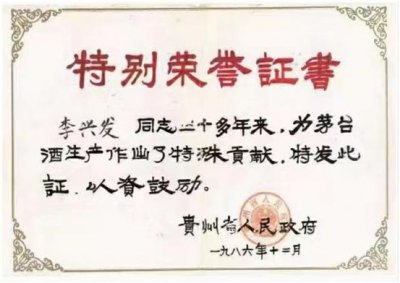 特别荣誉証書
李兴发 同志三十多年来，为茅台
酒生产作出了特殊贡献，特发此
証，以資鼓励。
貴州省人民政府
一九八六年十二月